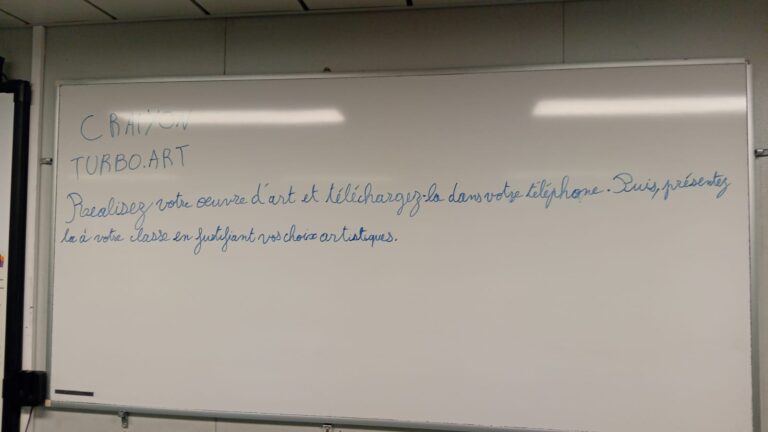 CRAIYON
TURBO.ART
Réalisez votre œuvre d'art et téléchargez-la dans votre téléphone. Puis, présentez
la à votre classe en justifiant vos choix artistiques.